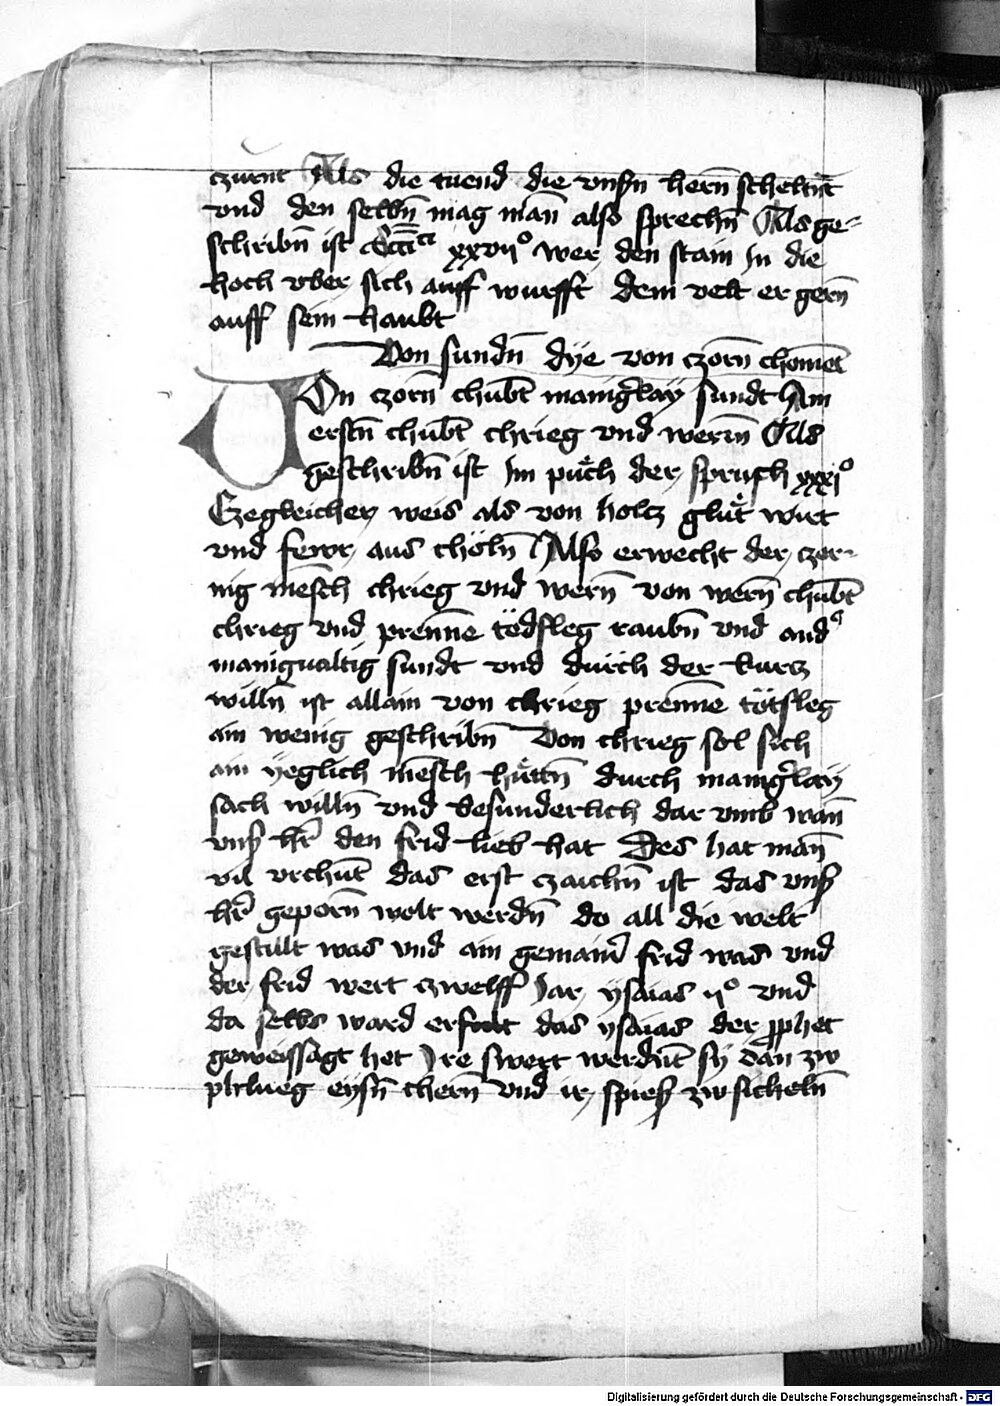 czürnt Als die tuend die vnsßn hern̄ scheltn̄t
vnd den selbn̄ mag man̄ also sprechn̄ Als ge-
schribn̄ ist xxvijº wer den stain In die
hoch vber sich auff wurfft dem velt er gern̄
auff sein haubt
Von sundn̄ dÿe von czorn̄ chōment
Von czorn̄ chūbt manig̉lay sundt Am
erstn̄ chūbt chrieg vnd werrn̄ Als
geschribn̄ ist Im pu̇ch der spruch xxxjº
Czegleicher weis als von holcz glu̇t wirt
vnd fewr aus chöln̄ Also erwecht der czor-
nig mēsch chrieg vnd wern̄ von wern̄ chūbt
chrieg vnd prenn̄e tödsleg raubn̄ vnd and̉
manigualtig sundt vnd durch der kurcz
willn̄ ist allain von chrieg prenn̄e tötsleg
ain wenig geschribn̄ Von chrieg sol sich
ain ÿeglich mēsch hu̇ttn̄ durch manig̉lay
sach willn̄ vnd besunderlich dar vmb wan̄
vnsß hr̄ den frid lieb hat Des hat man̄
vil vrchūt das erst czaichn̄ ist das vnsß
hr̄ geporn̄ wolt werdn̄ do all die welt
gestillt was vnd ain gemain̉ frid was vnd
der frid wert czwelff Jar ysaias ijº vnd
da selbs ward erfolt das ysaias der ꝓphet
geweissagt het Ire swert werdn̄t sÿ dan̄ zw
phlueg eÿsn̄ chern̄ vnd ir spieß zw sicheln̄
Digitalisierung gefördert durch die Deutsche Forschungsgemeinschaft - DFG